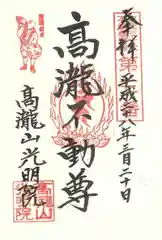 奉拝
平成二十八年三月二十日
高瀧不動尊
高瀧山光明院